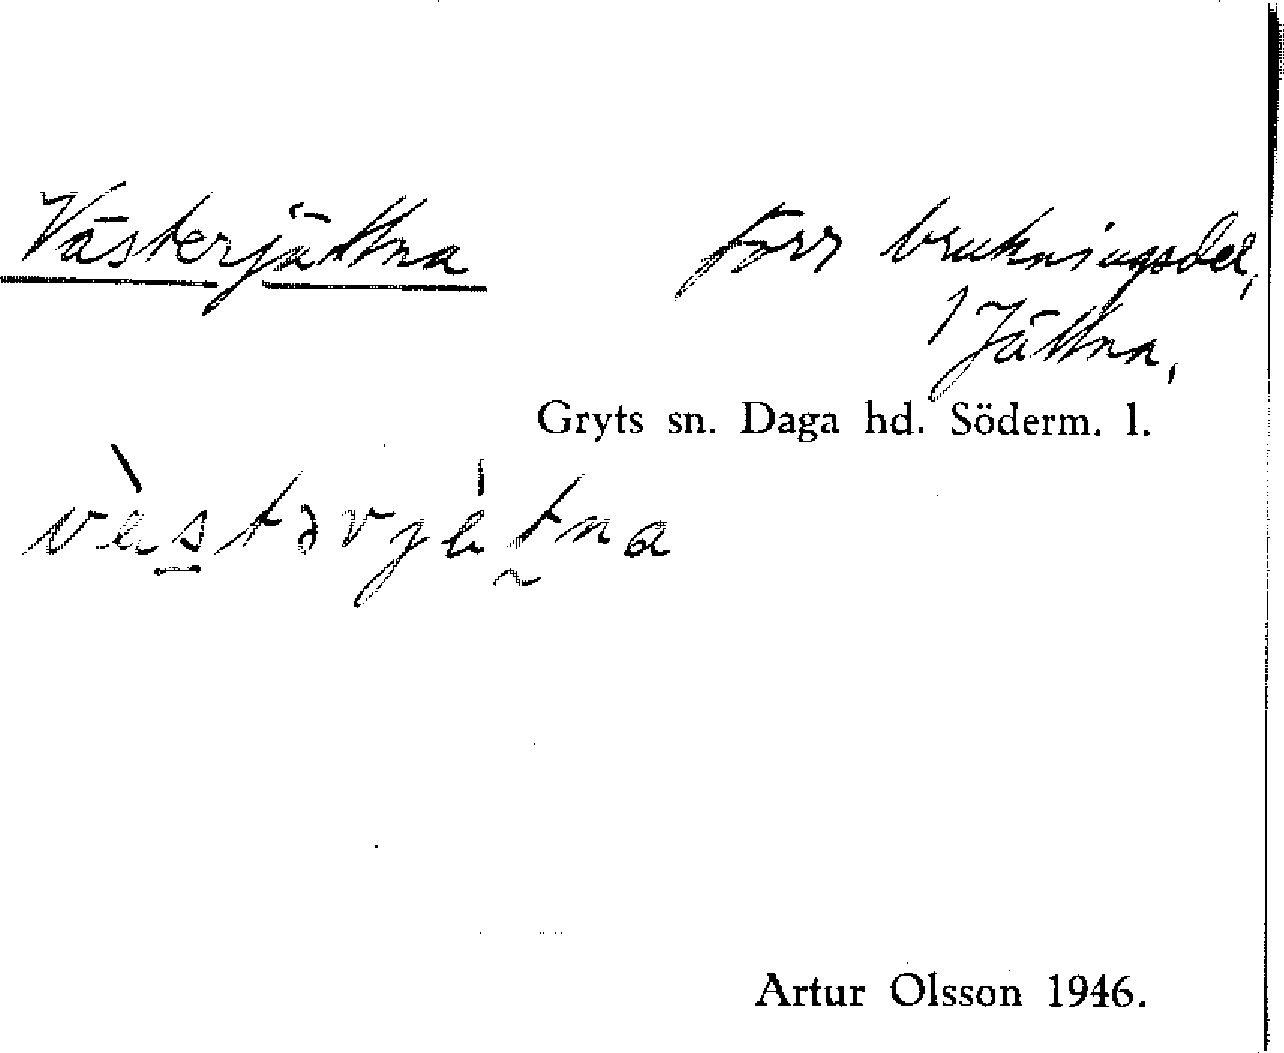 Västerjättna förr brukningsdel,
i Jättna,
Gryts sn. Daga hd. Söderm. l.
Artur Olsson 1946.